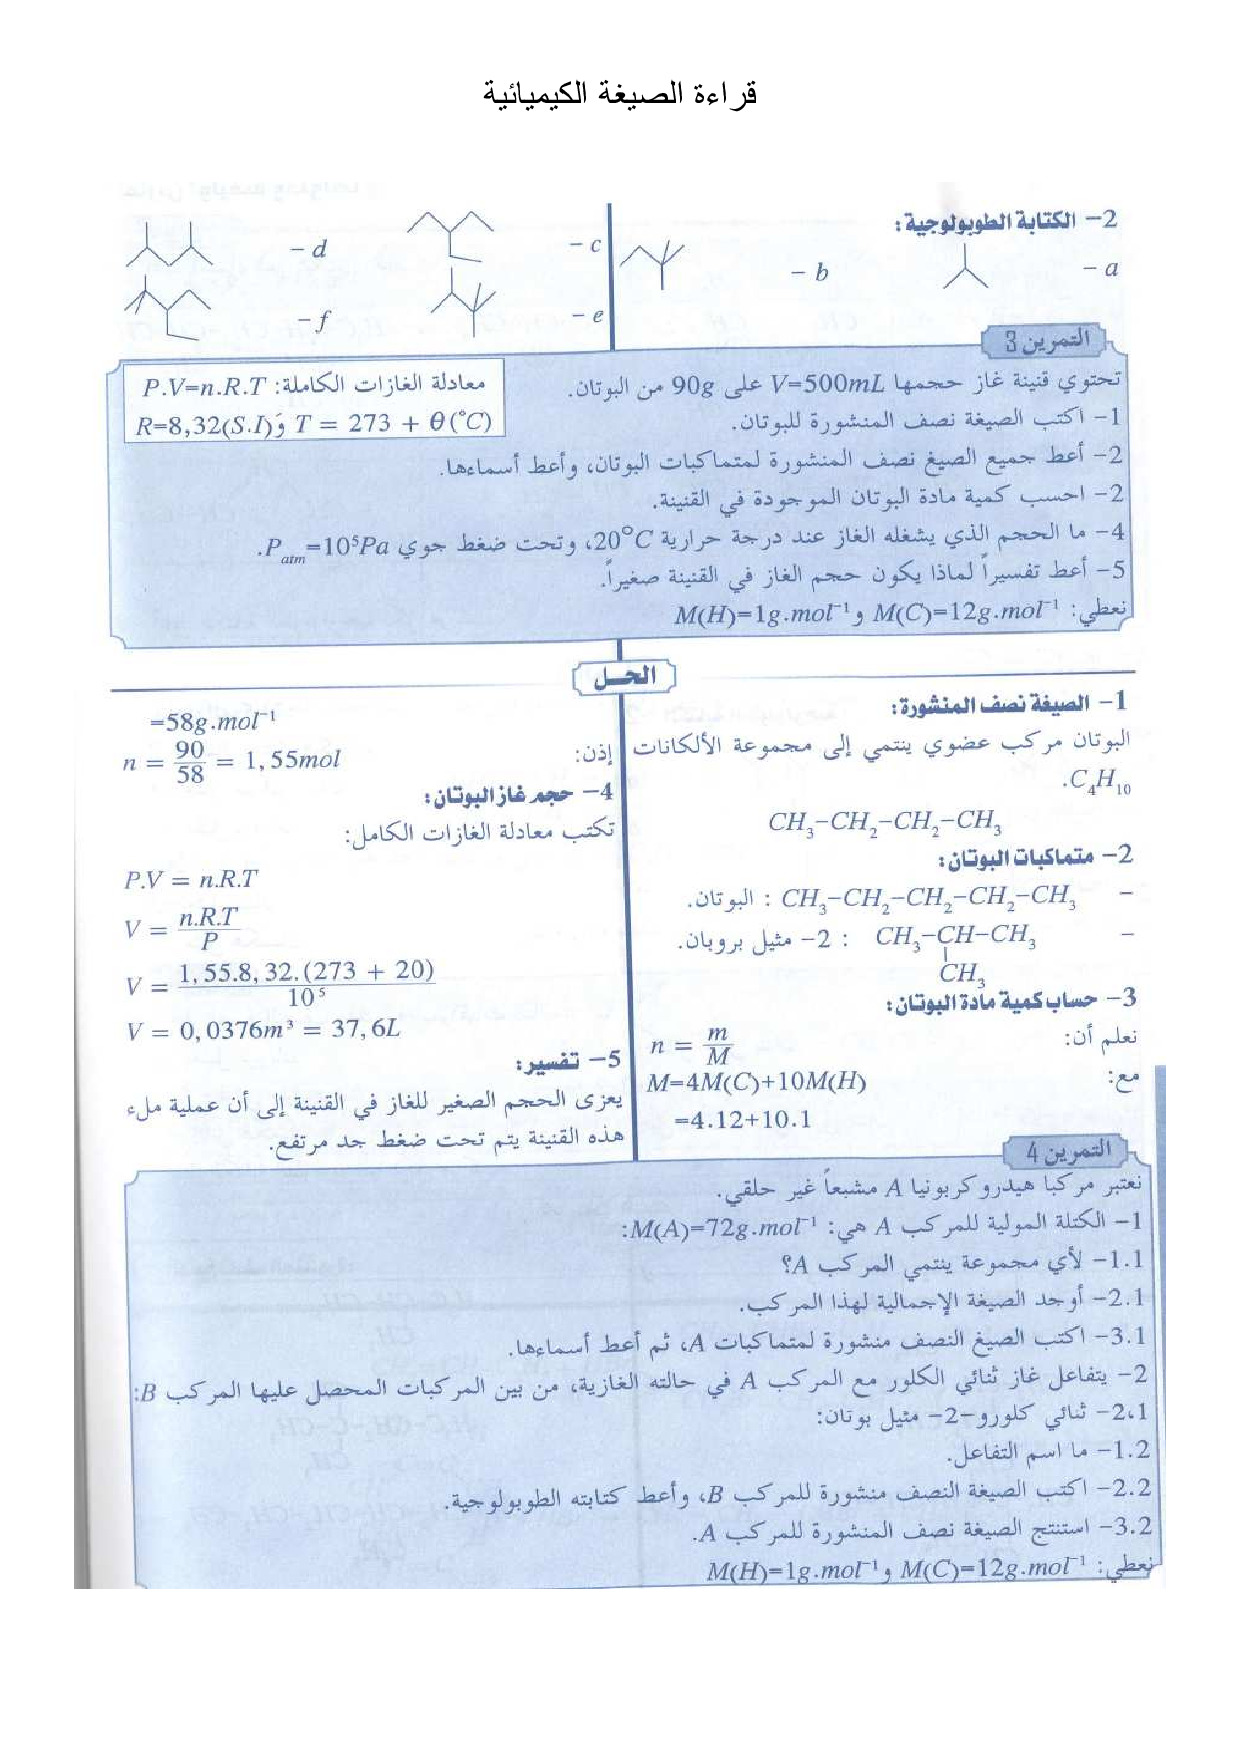 قراءة الصيغة الكيميائية
2- الكتابة الطوبولوجية:
a -
b -
c -
d -
e -
f -
التمرين 3
تحتوي قنينة غاز حجمها V=500mL على 90g من البوتان.
1- اكتب الصيغة نصف المنشورة للبوتان.
2- أعط جميع الصيغ نصف المنشورة لمتماكبات البوتان، وأعط أسماءها.
2- احسب كمية مادة البوتان الموجودة في القنينة.
4- ما الحجم الذي يشغله الغاز عند درجة حرارية 20°C، وتحت ضغط جوي P_atm=10⁵Pa.
5- أعط تفسيراً لماذا يكون حجم الغاز في القنينة صغيراً.
نعطي: M(C)=12g.mol⁻¹ و M(H)=1g.mol⁻¹
معادلة الغازات الكاملة: P.V=n.R.T
R=8,32(S.I) وَ T = 273 + θ(°C)
الحل
1- الصيغة نصف المنشورة:
البوتان مركب عضوي ينتمي إلى مجموعة الألكانات
C₄H₁₀.
CH₃–CH₂–CH₂–CH₃
2- متماكبات البوتان:
- CH₃–CH₂–CH₂–CH₂–CH₃ : البوتان.
- CH₃–CH–CH₃ : 2- مثيل بروبان.
CH₃
3- حساب كمية مادة البوتان:
نعلم أن: n = m/M
مع: M=4M(C)+10M(H)
=4.12+10.1
=58g.mol⁻¹
إذن: n = 90/58 = 1,55mol
4- حجم غاز البوتان:
تكتب معادلة الغازات الكامل:
P.V = n.R.T
V = n.R.T/P
V = 1,55.8,32.(273 + 20)/10⁵
V = 0,0376m³ = 37,6L
5- تفسير:
يعزى الحجم الصغير للغاز في القنينة إلى أن عملية ملء
هذه القنينة يتم تحت ضغط جد مرتفع.
التمرين 4
نعتبر مركبا هيدروكربونيا A مشبعاً غير حلقي.
1- الكتلة المولية للمركب A هي: M(A)=72g.mol⁻¹:
1.1- لأي مجموعة ينتمي المركب A؟
2.1- أوجد الصيغة الإجمالية لهذا المركب.
3.1- اكتب الصيغ النصف منشورة لمتماكبات A، ثم أعط أسماءها.
2- يتفاعل غاز ثنائي الكلور مع المركب A في حالته الغازية، من بين المركبات المحصل عليها المركب B:
2،1- ثنائي كلورو-2- مثيل بوتان:
1.2- ما اسم التفاعل.
2.2- اكتب الصيغة النصف منشورة للمركب B، وأعط كتابته الطوبولوجية.
3.2- استنتج الصيغة نصف المنشورة للمركب A.
نعطي: M(C)=12g.mol⁻¹ و M(H)=1g.mol⁻¹